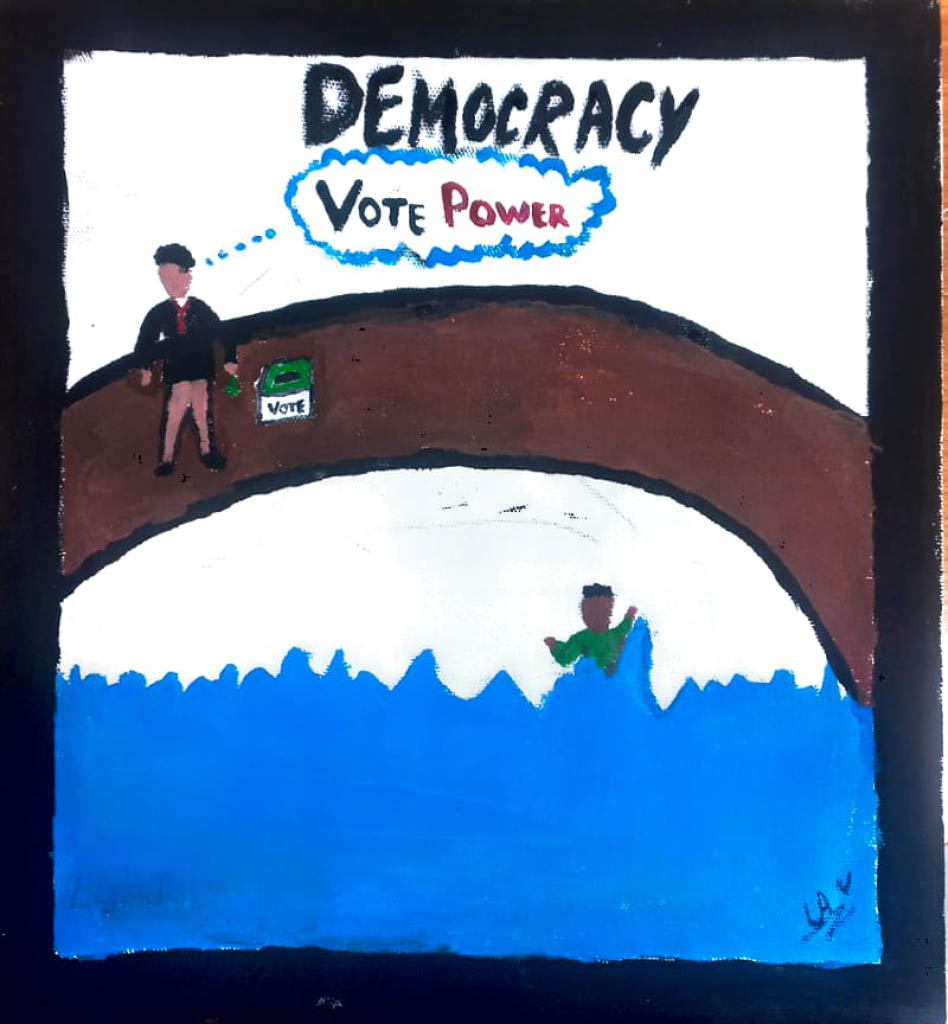 DEMOCRACY
VOTE POWER
VOTE